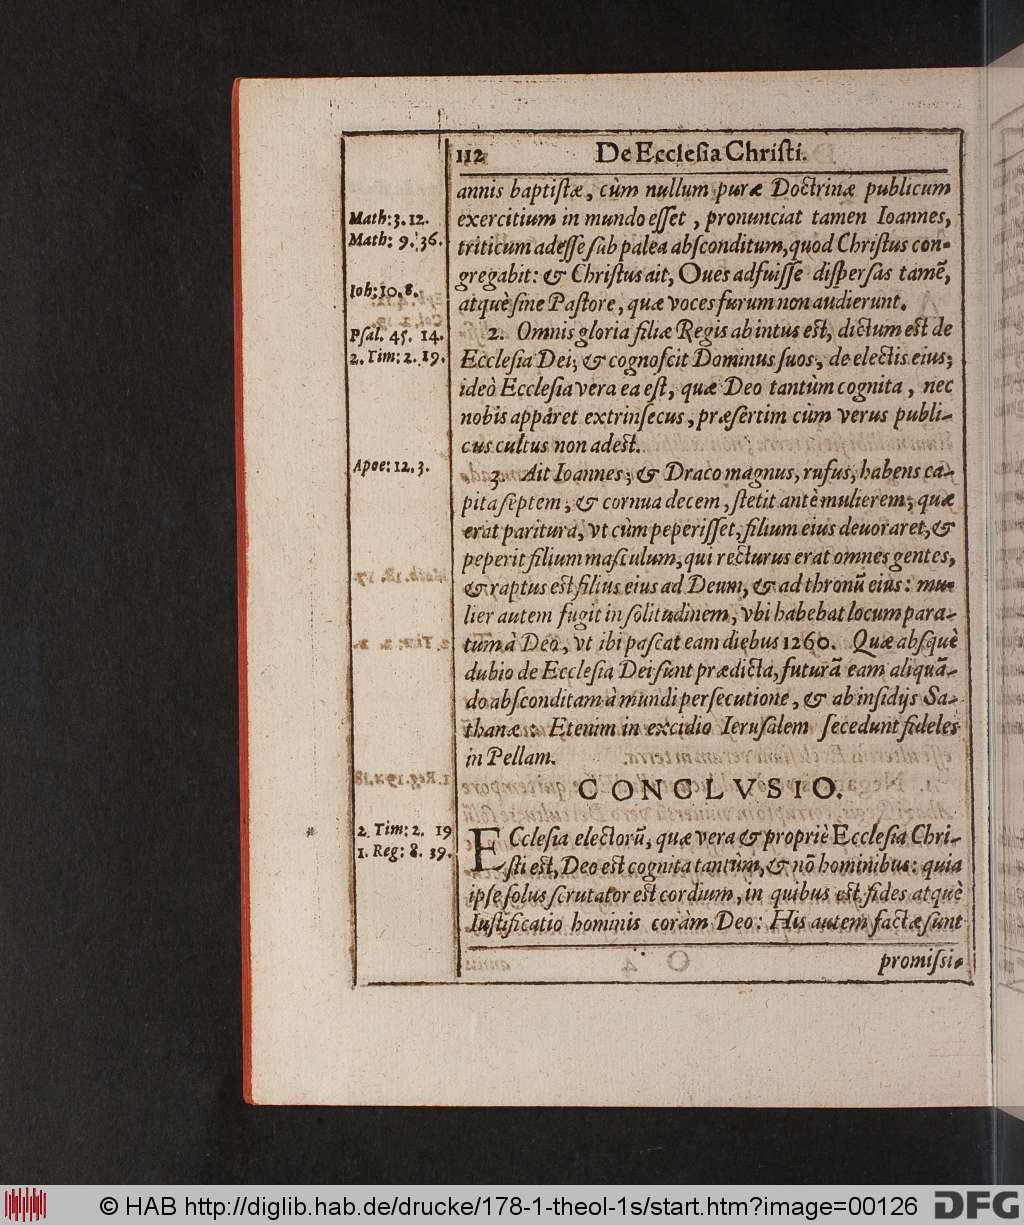 112 De Ecclesia Christi.
annis baptistæ, cùm nullum puræ Doctrinæ publicum
Math: 3. 12.
exercitium in mundo esset, pronunciat tamen Ioannes,
Math: 9. 36.
triticum adesse sub palea absconditum, quod Christus con-
gregabit: & Christus ait, Oues adfuisse dispersas tamē,
Ioh: 10. 8.
atquè sine Pastore, quæ voces furum non audierunt.
Psal. 45. 14.
2. Omnis gloria filiæ Regis ab intus est, dictum est de
2. Tim: 2. 19.
Ecclesia Dei, & cognoscit Dominus suos, de electis eius;
ideò Ecclesia vera ea est, quæ Deo tantùm cognita, nec
nobis appâret extrinsecus, præsertim cùm verus publi-
cus cultus non adest.
Apoc: 12. 3.
3. Ait Ioannes; & Draco magnus, rufus, habens ca-
pita septem, & cornua decem, stetit antè mulierem, quæ
erat paritura, vt cùm peperisset, filium eius deuoraret, &
peperit filium masculum, qui recturus erat omnes gentes,
& raptus est filius eius ad Deum, & ad thronū eius: mu-
lier autem fugit in solitudinem, vbi habebat locum para-
tum à Deo, vt ibi pascat eam diebus 1260. Quæ absquè
dubio de Ecclesia Dei sunt prædicta, futurā eam aliquā-
do absconditam à mundi persecutione, & ab insidijs Sa-
thanæ: Etenim in excidio Ierusalem secedunt fideles
in Pellam.
CONCLVSIO.
2. Tim: 2. 19
ECclesia electorū, quæ vera & propriè Ecclesia Chri-
1. Reg: 8. 39.
sti est, Deo est cognita tantùm, & nō hominibus: quia
ipse solus scrutator est cordium, in quibus est fides atquè
Iustificatio hominis coràm Deo: His autem factæ sunt
promissi-
© HAB http://diglib.hab.de/drucke/178-1-theol-1s/start.htm?image=00126 DFG